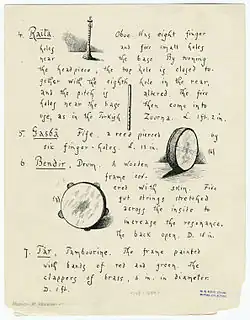 4. Raita. Oboe. Has eight finger
holes and four small holes
near the base. By running
the headpiece, the top hole is closed to-
gether with the eighth hole in the rear,
and the pitch is altered. The five
holes near the base then come into
use, as in the Turkish Zuorna. L. 1ft. 2 in.
5. Gasbà. Fife, a reed pierced by
six finger-holes. L. 15 in.
6. Bendir. Drum. A wooden
frame cov-
ered with skin. Five
gut strings stretched
across the inside to
increase the resonance,
the back open. D. 16 in.
7. Tar. Tambourine. The frame painted
with bands of red and green. The
clappers of brass, in. in diameter.
D. 1 ft.